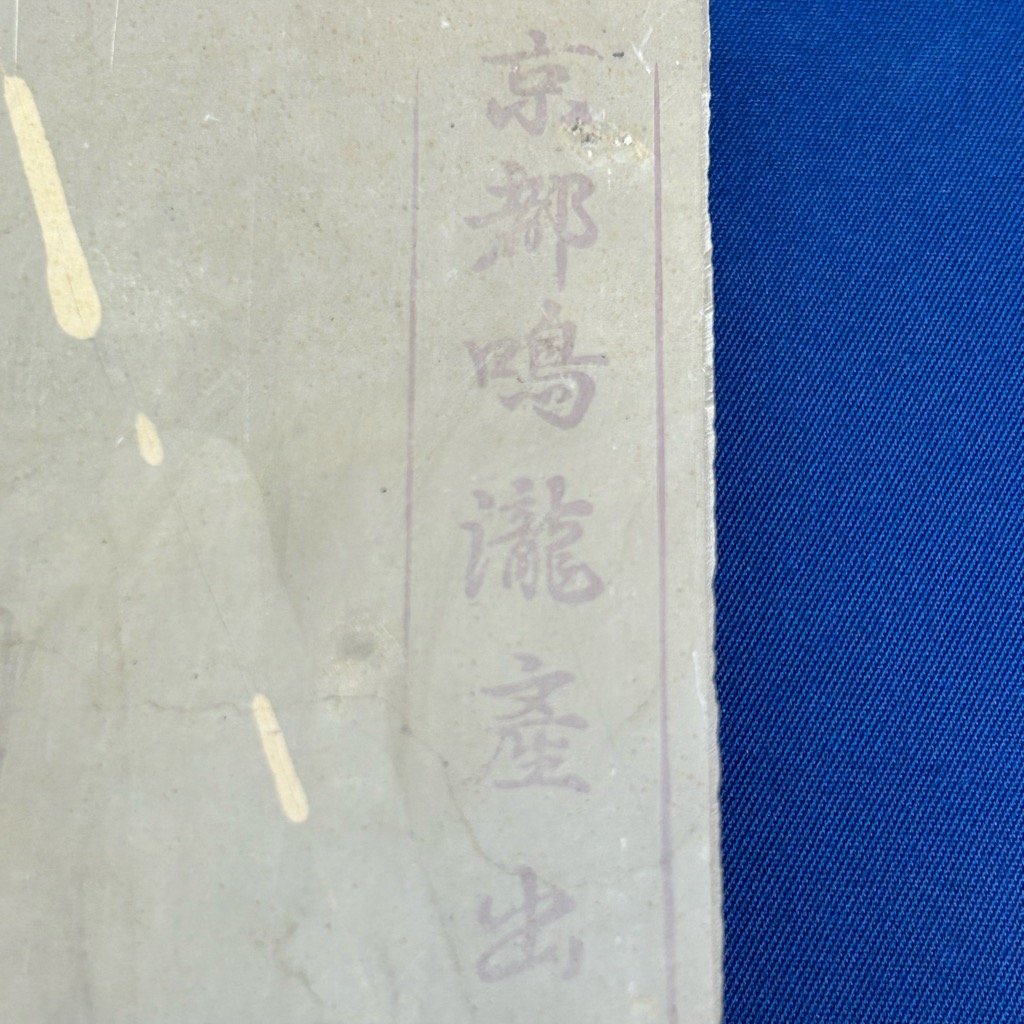 京都鳴瀧產出